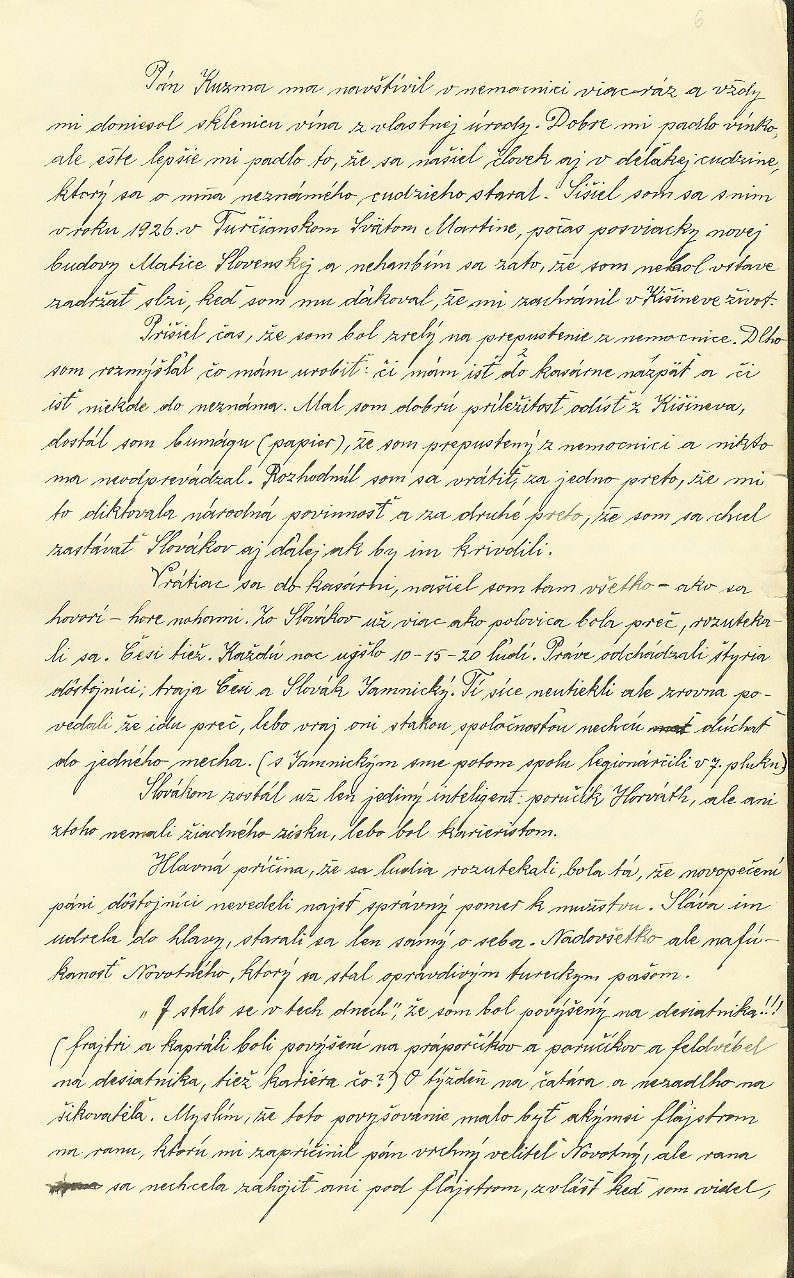 6
Pán Kuzma ma navštívil v nemocnici viac ráz a vždy
mi doniesol sklenicu vína z vlastnej úrody. Dobre mi padlo vínko,
ale ešte lepšie mi padlo to, že sa našiel človek aj v ďalekej cudzine,
ktorý sa o mňa neznámého, cudzieho staral. Sišiel som sa s ním
v roku 1926. v Turčianskom Svätom Martine, počas posviacky novej
budovy Matice Slovenskej a nehanbím sa zato, že som nebol vstave
zadržať slzi, keď som mu ďakoval, že mi zachránil v Kišineve život.
Prišiel čas, že som bol zrelý na prepustenie z nemocnice. Dlho
som rozmýšlal čo mám urobiť: či mám isť do kasárne názpäť a či
isť niekde do neznáma. Mal som dobrú príležitosť odísť z Kišineva,
dostál som bumágu (papier), že som prepustený z nemocnici a nikto
ma neodprevádzal. Rozhodnúl som sa vrátiť, za jedno preto, že mi
to diktovala národná povinnosť a za druhé preto, že som sa chcel
zastávať Slovákov aj ďalej ak by im krivdili.
Vrátiac sa do kasárni, našiel som tam všetko – ako sa
hovorí – hore nohami. Zo Slovákov už viac ako polovica bola preč, rozuteka-
li sa. Česi tiež. Každú noc ujšlo 10-15-20 ľudí. Práve odchádzali štyria
dôstojníci; traja Česi a Slovák Jamnický. Tí síce neutiekli ale zrovna po-
vedali že idu preč, lebo vraj oni stakou spoločnosťou nechcú dúchať
do jedného mecha. (s Jamnickým sme potom spolu legionárčili v 7. pluku)
Slovákom zostál už len jediný inteligent: poručík Horváth, ale ani
ztoho nemali žiadného zisku, lebo bol karieristom.
Hlavná príčina, že sa ľudia rozutekali, bola tá, že novopečení
páni dôstojníci nevedeli najsť správný pomer k mužstvu. Sláva im
udrela do hlavy, starali sa len samý o seba. Nadovšetko ale nafú-
kanosť Novotného, ktorý sa stal opravdivým tureckym pašom.
„I stalo se v tech dnech", že som bol povýšený na desiatnika!!!
(frajtri a kapráli boli povýšení na práporčíkov a poručíkov a feldvébel
na desiatnika, tiež kariéra čo?) O týždeň na čatára a nezadlho na
šikovatělâ. Myslím, že toto povyšovanie malo byť akýmsi flajstrom
na ranu, ktorú mi zapríčinil pán vrchný velitel Novotný, ale rana
sa nechcela zahojiť ani pod flajstrom, zvlášť keď som videl,